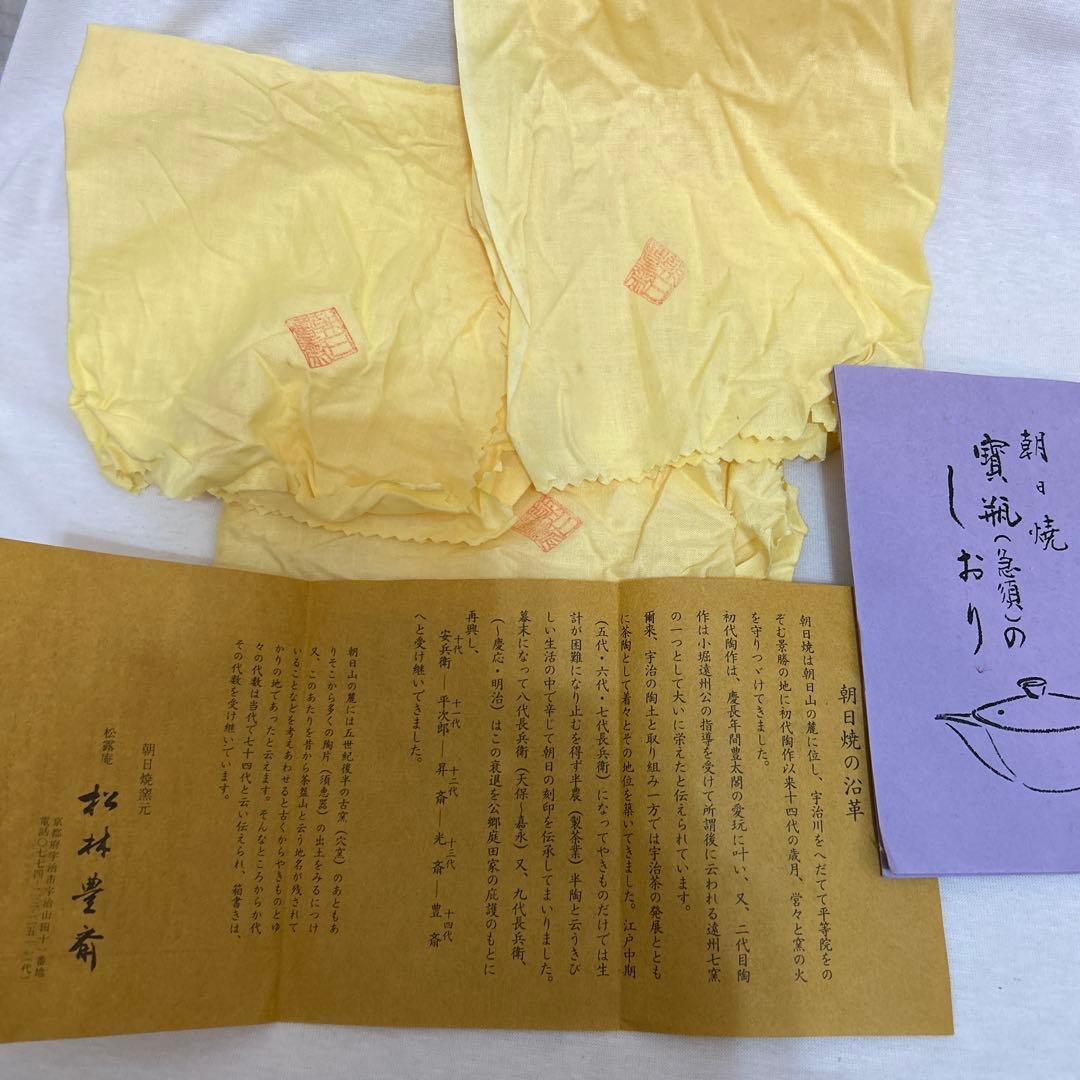 朝日焼
寶瓶(急須)の
しおり
朝日焼の沿革
朝日焼は朝日山の麓に位し、宇治川をへだてて平等院をの
ぞむ景勝の地に初代陶作以来十四代の歳月、営々と窯の火
を守りつゞけてきました。
初代陶作は、慶長年間豊太閤の愛玩に叶い、又、二代目陶
作は小堀遠州公の指導を受けて所謂後に云われる遠州七窯
の一つとして大いに栄えたと伝えられています。
爾来、宇治の陶土と取り組み一方では宇治茶の発展ととも
に茶陶として着々とその地位を築いてきました。江戸中期
(五代・六代・七代長兵衛)になってやきものだけでは生
計が困難になり止むを得ず半農(製茶業)半陶と云うきび
しい生活の中で辛じて朝日の刻印を伝承してまいりました。
幕末になって八代長兵衛(天保〜嘉永)又、九代長兵衛、
(〜慶応・明治)はこの衰退を公郷庭田家の庇護のもとに
再興し、
十代 十一代 十二代 十三代 十四代
安兵衛―平次郎―昇斎―光斎―豊斎
へと受け継いできました。
朝日山の麓には五世紀後半の古窯(穴窯)のあともあ
りそこから多くの陶片(須恵器)の出土をみるにつけ
又、このあたりを昔から茶盌山と云う地名が残されて
いることなどを考えあわせると古くからやきものとゆ
かりの地であったと云えます。そんなところからか代
々の代数は当代で七十四代と云い伝えられ、箱書きは、
その代数を受け継いでいます。
朝日焼窯元
松露庵 松林豊斎
京都府宇治市宇治山田十一番地